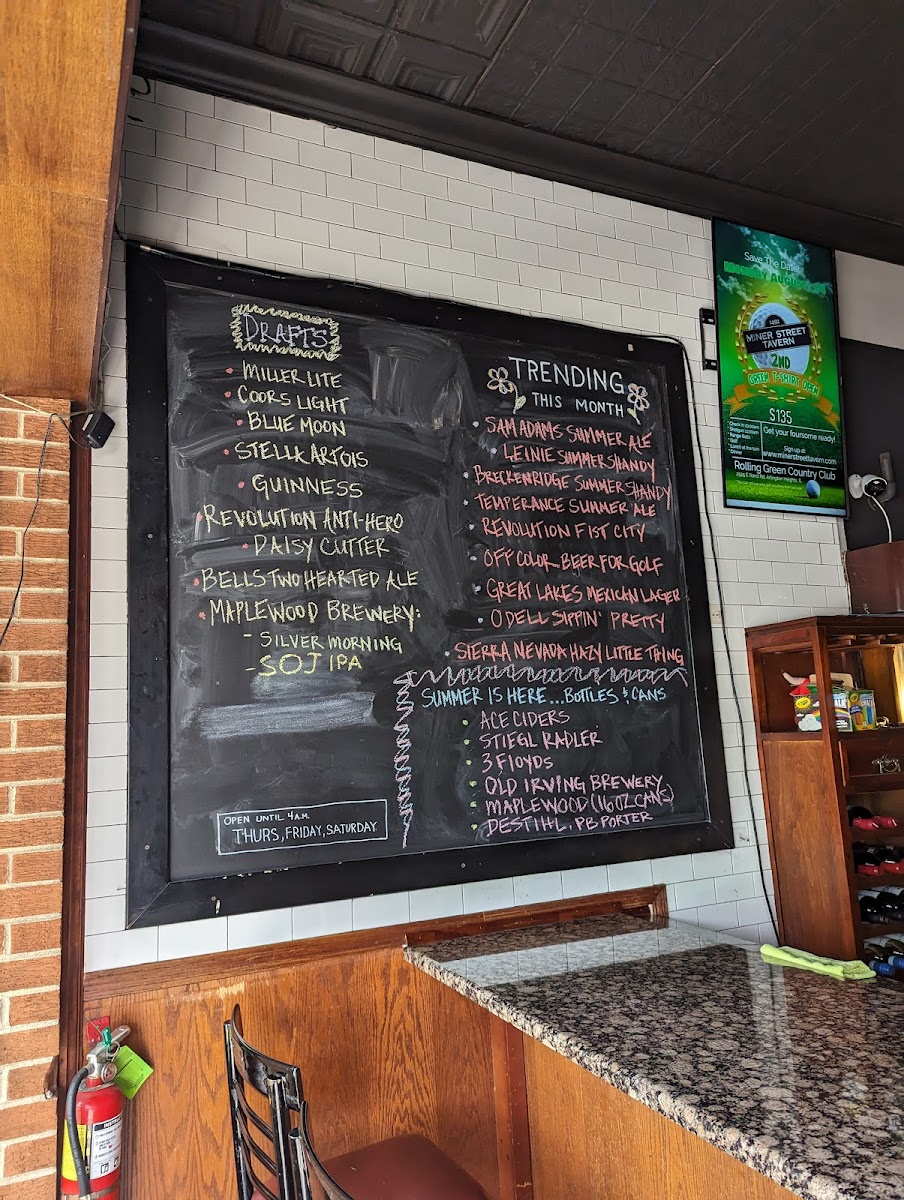 DRAFTS
MILLER LITE
COORS LIGHT
BLUE MOON
STELLA ARTOIS
GUINNESS
REVOLUTION ANTI-HERO
DAISY CUTTER
BELLS TWO HEARTED ALE
MAPLEWOOD BREWERY:
- SILVER MORNING
- SOJ IPA
OPEN UNTIL 4A.M.
THURS, FRIDAY, SATURDAY
TRENDING
THIS MONTH
SAM ADAMS SUMMER ALE
LEINIE SUMMER SHANDY
BRECKENRIDGE SUMMER SHANDY
TEMPERANCE SUMMER ALE
REVOLUTION FIST CITY
OFF COLOR BEER FOR GOLF
GREAT LAKES MEXICAN LAGER
ODELL SIPPIN' PRETTY
SIERRA NEVADA HAZY LITTLE THING
SUMMER IS HERE... BOTTLES & CANS
ACE CIDERS
STIEGL RADLER
3 FLOYDS
OLD IRVING BREWERY
MAPLEWOOD (16 OZ CANS)
DESTIHL, PB PORTER
Save The Date!
MINER STREET
TAVERN
2ND
GREEN T-SHIRT OPEN
$135
Get your foursome ready!
Sign up at:
www.minerstreettavern.com
Rolling Green Country Club